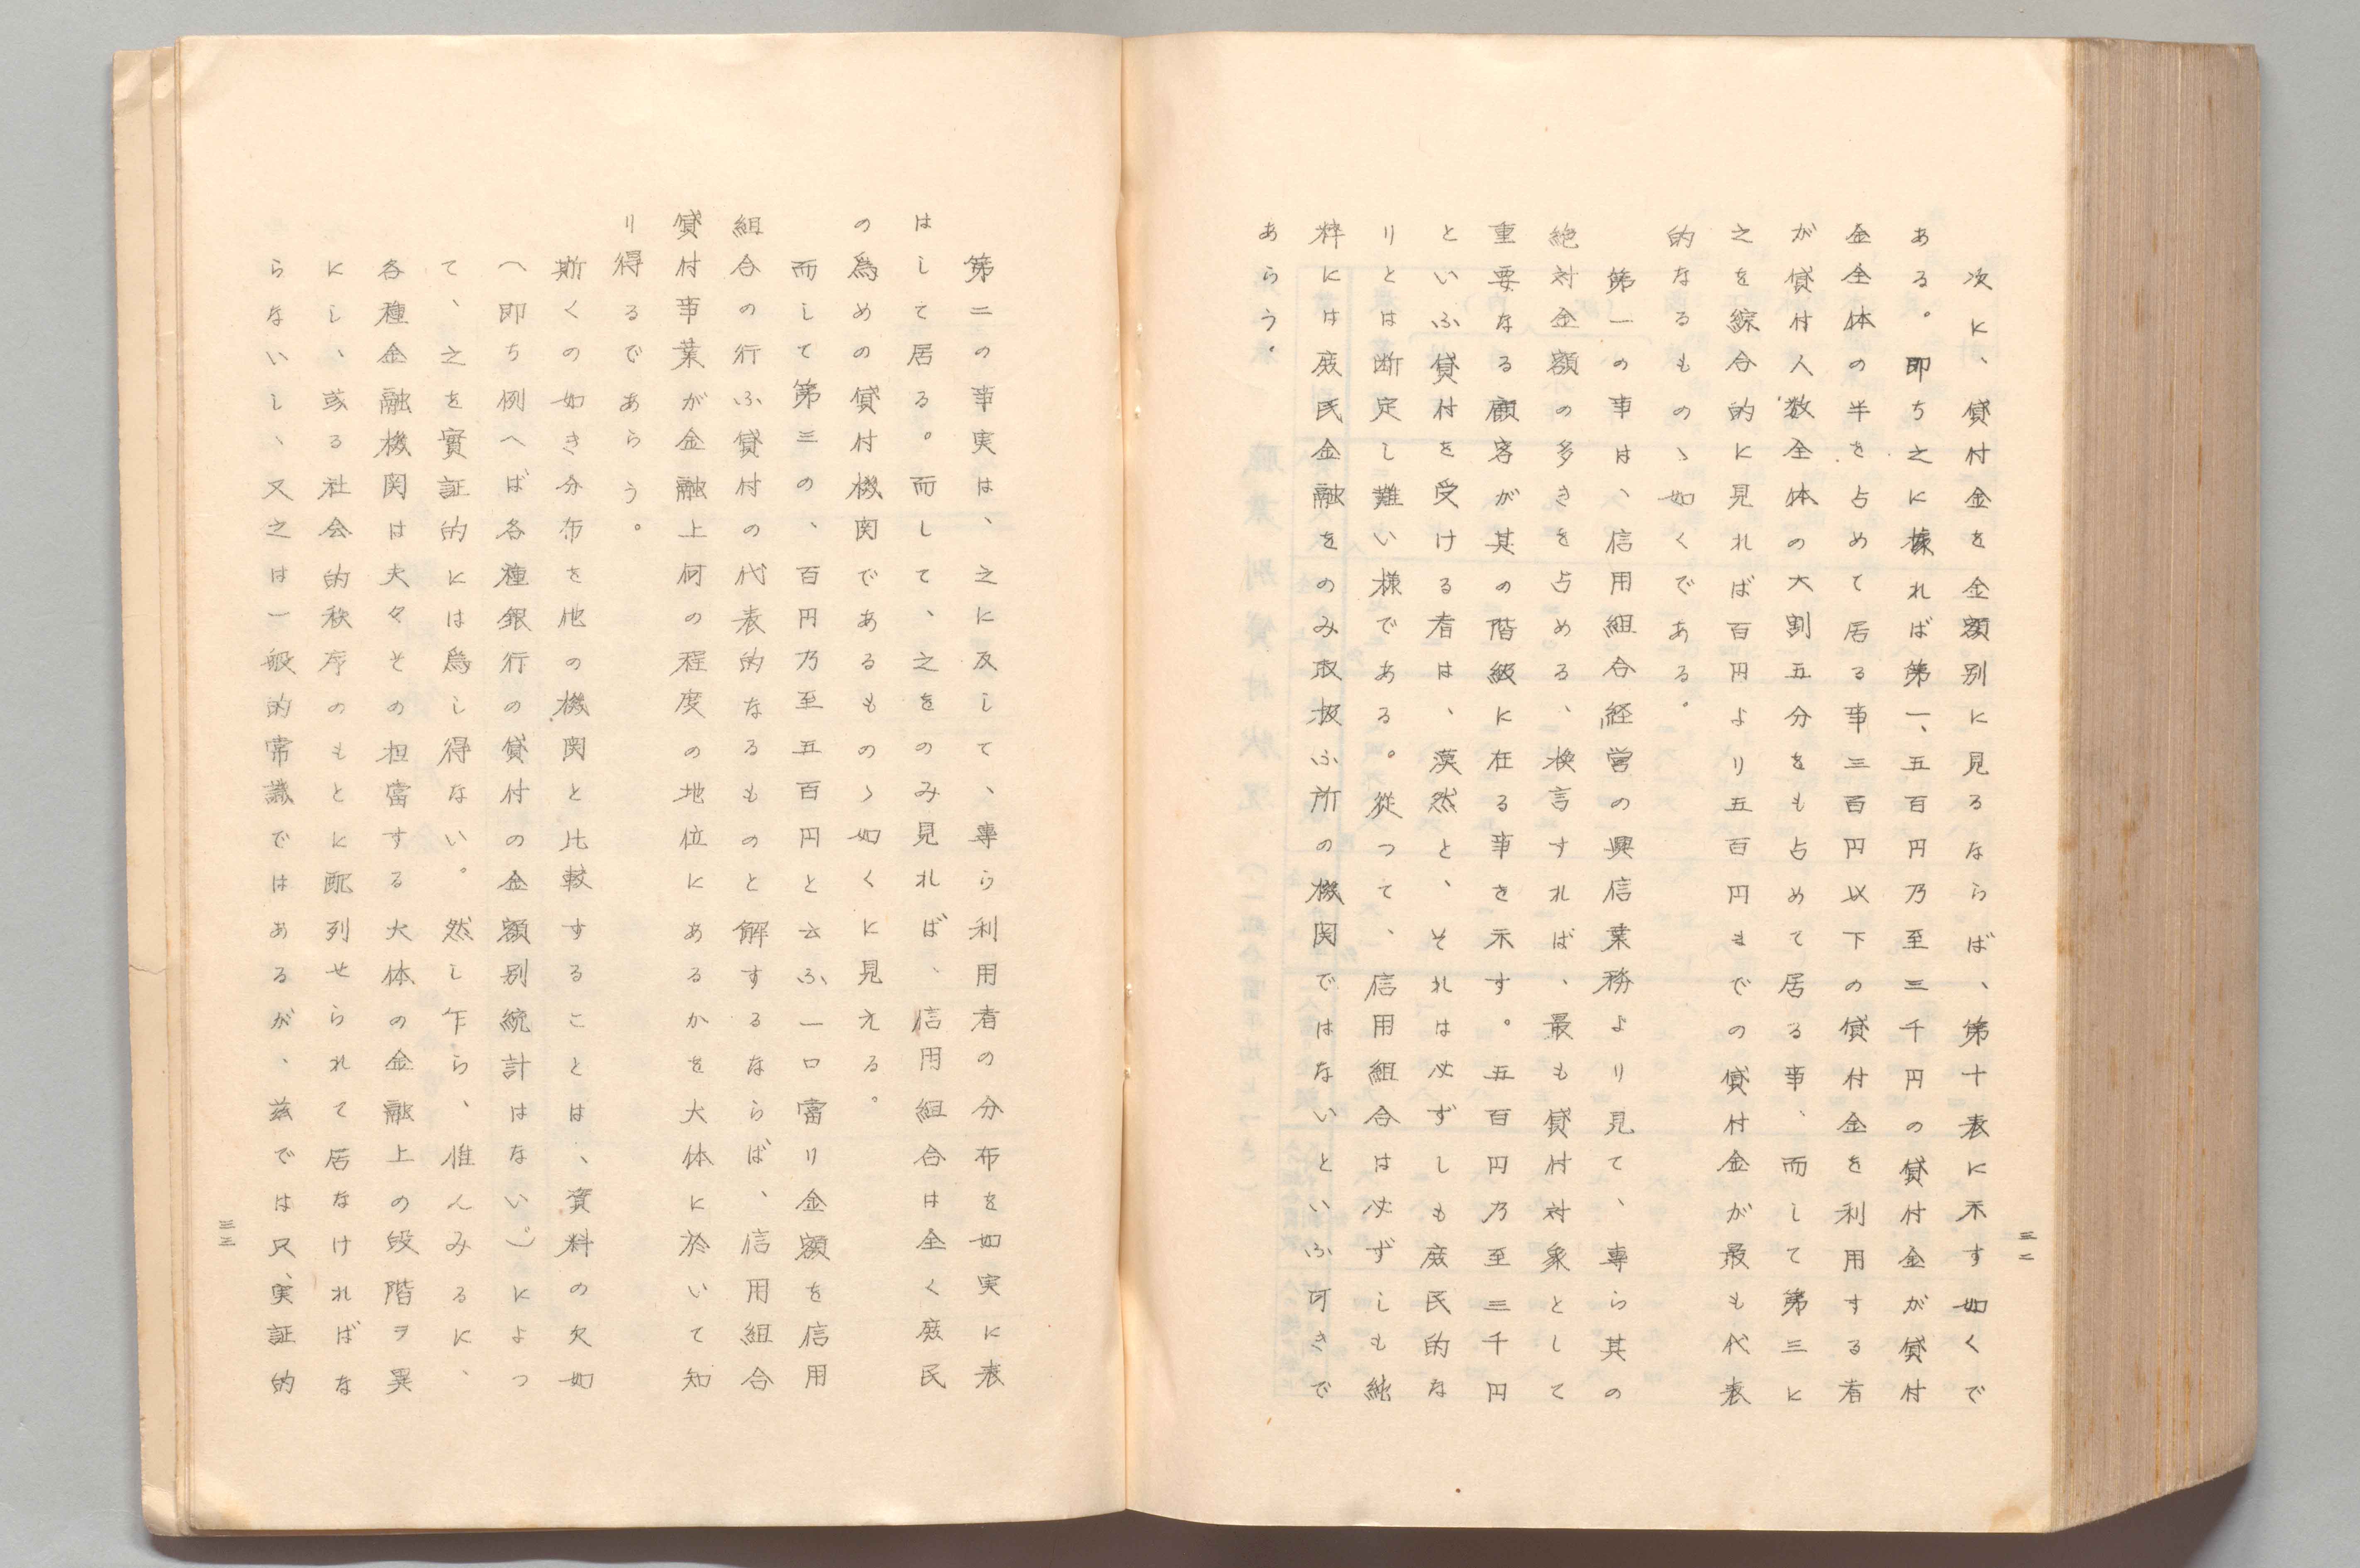 三二
次に、貸付金を金額別に見るならば、第十表に示す如くで
ある。即ち之に據れば第一、五百円乃至三千円の貸付金が貸付
金全体の半を占めて居る事三百円以下の貸付金を利用する者
が貸付人数全体の大割五分をも占めて居る事、而して第三に
之を綜合的に見れば百円より五百円までの貸付金が最も代表
的なるものゝ如くである。
第一の事は、信用組合経営の興信業務より見て、専ら其の
絶対金額の多きを占める、換言すれば、最も貸付対象として
重要なる顧客が其の階級に在る事を示す。五百円乃至三千円
といふ貸付を受ける者は、漠然と、それは必ずしも庶民的な
りとは断定し難い様である。從つて、信用組合は必ずしも純
粋には庶民金融をのみ取扱ふ所の機関ではないといふ可きで
あらう。
第二の事実は、之に反して、専ら利用者の分布を如実に表
はして居る。而して、之をのみ見れば、信用組合は全く庶民
の爲めの貸付機関であるものゝ如くに見える。
而して第三の、百円乃至五百円と云ふ一口當り金額を信用
組合の行ふ貸付の代表的なるものと解するならば、信用組合
貸付事業が金融上何の程度の地位にあるかを大体に於いて知
り得るであらう。
斯くの如き分布を他の機関と比較することは、資料の欠如
（即ち例へば各種銀行の貸付の金額別統計はない。）によつ
て、之を實証的には爲し得ない。然し乍ら、惟んみるに、
各種金融機関は夫々その担當する大体の金融上の段階ヲ異
にし、或る社会的秩序のもとに配列せられて居なければな
らないし、又之は一般的常識ではあるが、茲では只、実証的
三三